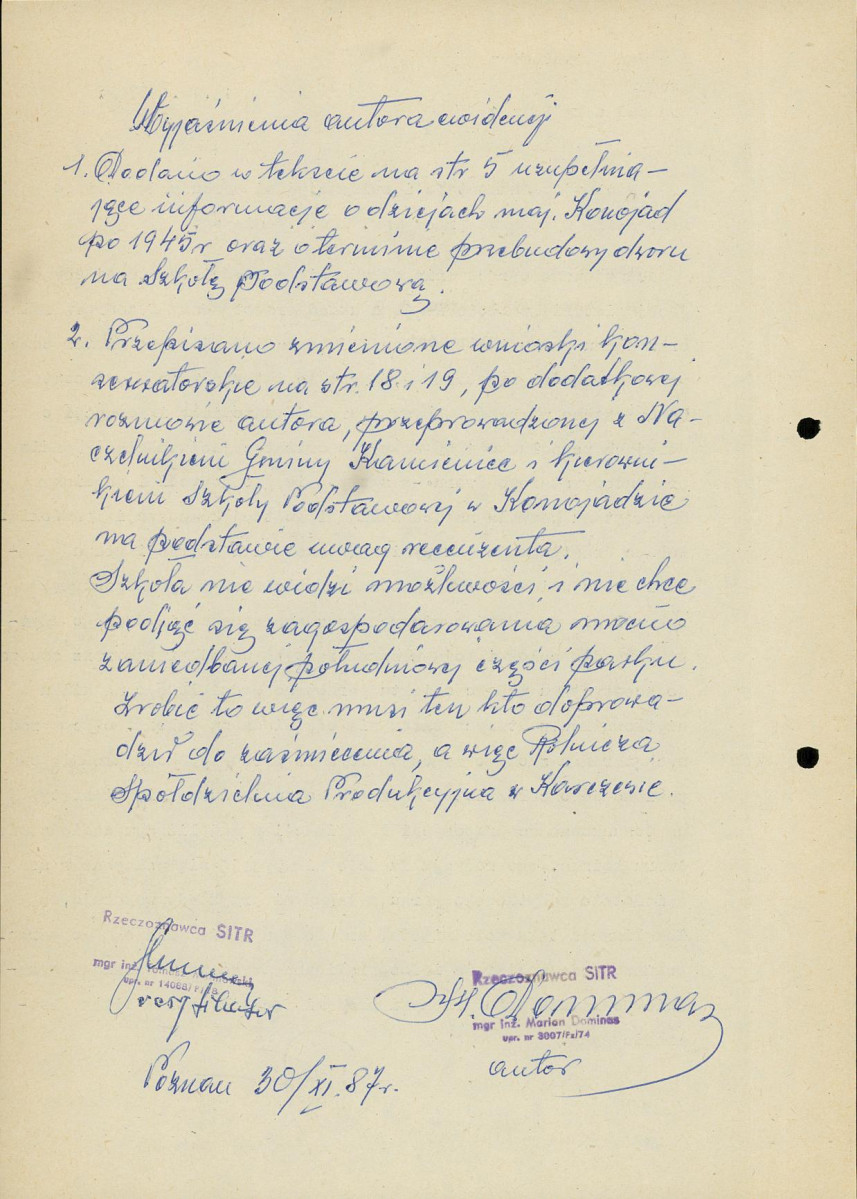 Wyjaśnienia autora ewidencji
1. Dodano w tekscie na str 5 uzupełnia-
jące informacje o dziejach maj. Konojad
po 1945 r oraz o terminie przebudowy dworu
na Szkołę Podstawową.
2. Przepisano zmienione wnioski kon-
serwatorskie na str. 18 i 19, po dodatkowej
rozmowie autora, przeprowadzonej z Na-
czelnikiem Gminy Kamieniec i kierowni-
kiem Szkoły Podstawowej w Konojadzie
na podstawie uwag recenzenta.
Szkoła nie widzi możliwości, i nie chce
podjąć się zagospodarowania mocno
zaniedbanej południowej części parku.
Zrobić to więc musi ten kto doprowa-
dził do zaśmiecenia, a więc Rolnicza
Spółdzielnia Produkcyjna w Karczewie.
Rzeczoznawca SITR
mgr inż.
upr. nr 14068/
Rzeczoznawca SITR
M. Dominas
mgr inż. Marian Dominas
upr. nr 3007/Fz/74
autor
Poznań 30/XI.87r.